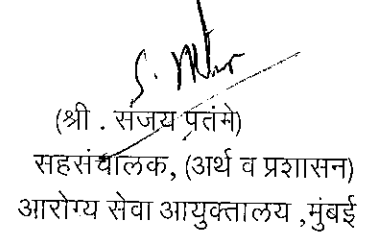 (श्री . संजय पतंगे)
सहसंचालक, (अर्थ व प्रशासन)
आरोग्य सेवा आयुक्तालय ,मुंबई